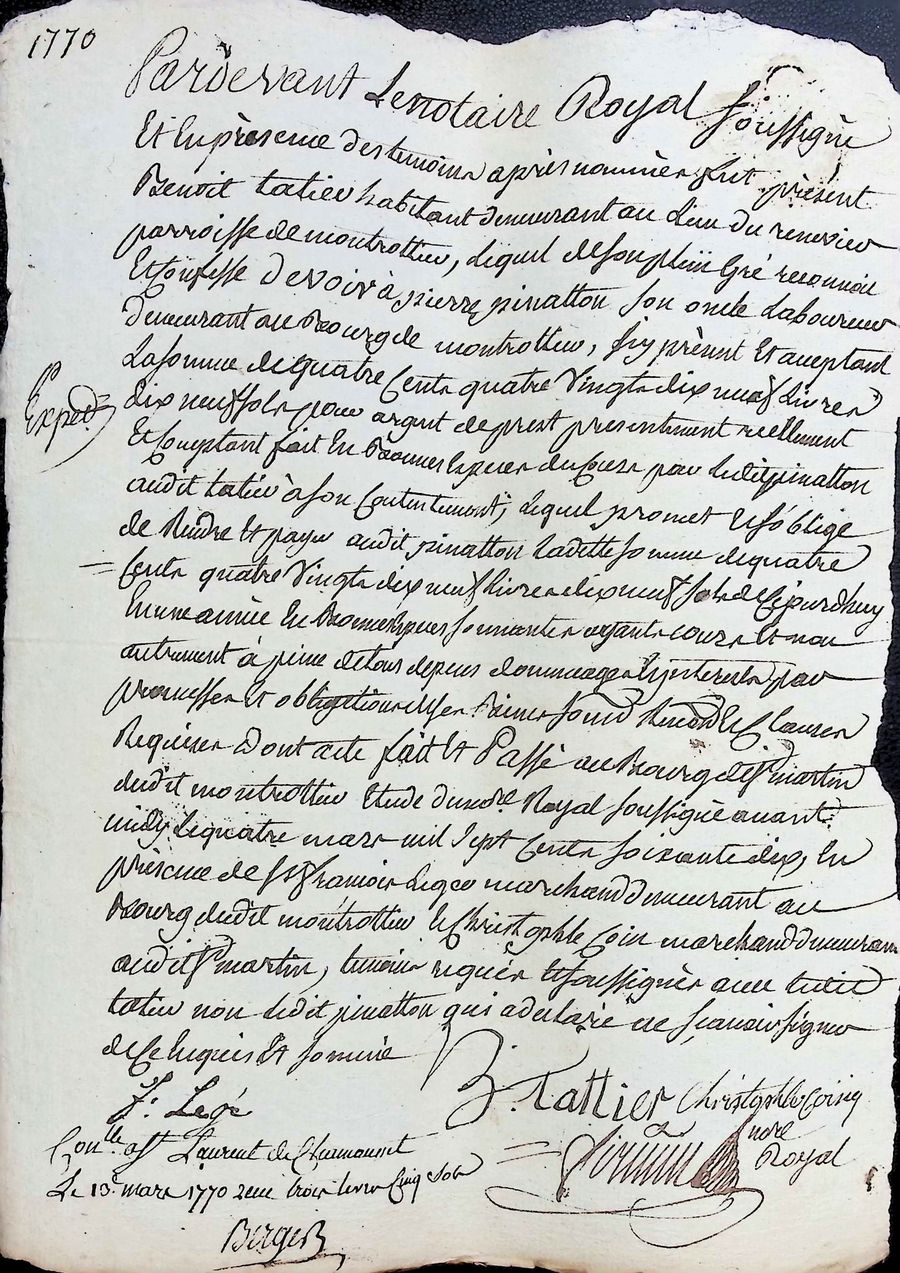 1770
Pardevant Le notaire Royal soussigné
Et En présence des temoins après nommés fut présent
Benoit tatieu habitant demeurant au Lieu du
parroisse de montrottier, Lequel de son plein Gré reconnoit
Et Confesse Devoir à pierre pinatton son oncle Laboureur
Demeurant au Bourg de montrottier, Ici présent Et aceptant
La somme de quatre Cents quatre Vingts dix neuf Livres
dix neuf sols pour argent de prest presentement reellement
Exped.
Et Comptant fait En Bonnes Especes du Cours par Ledit pinatton
audit tatieu à son Contentement, Lequel promet Et s'oblige
de Rendre Et payer audit pinatton Ladite somme de quatre
Cents quatre Vingts dix neuf Livres dix neuf sols de Cejourdhuy
En une année En Bonnes Especes sonnantes ayants cours Et non
autrement à peine de tous depens dommages Et interests par
promesses Et obligations de ses Biens Renon Et Clauses
Requises Dont acte fait Et Passé au Bourg de St martin
dudit montrottier Etude du nore Royal soussigné avant
midy Le quatre mars mil sept Cents soixante dix, En
présence de sr francois Legeo marchand demeurant au
Bourg dudit montrottier Et Christophle Coin marchand demeurant
audit St martin, temoins requis Et soussignés avec Ledit
tatieu non Ledit pinatton qui a declaré ne sçavoir signer
de Ce Enquis Et sommé
B. Tattier Christophle Coing
f: Legé
nore
Royal
Conlle a St Laurent de Chamousset
Le 13e mars 1770 Recu trois livres Cinq sols
Berger